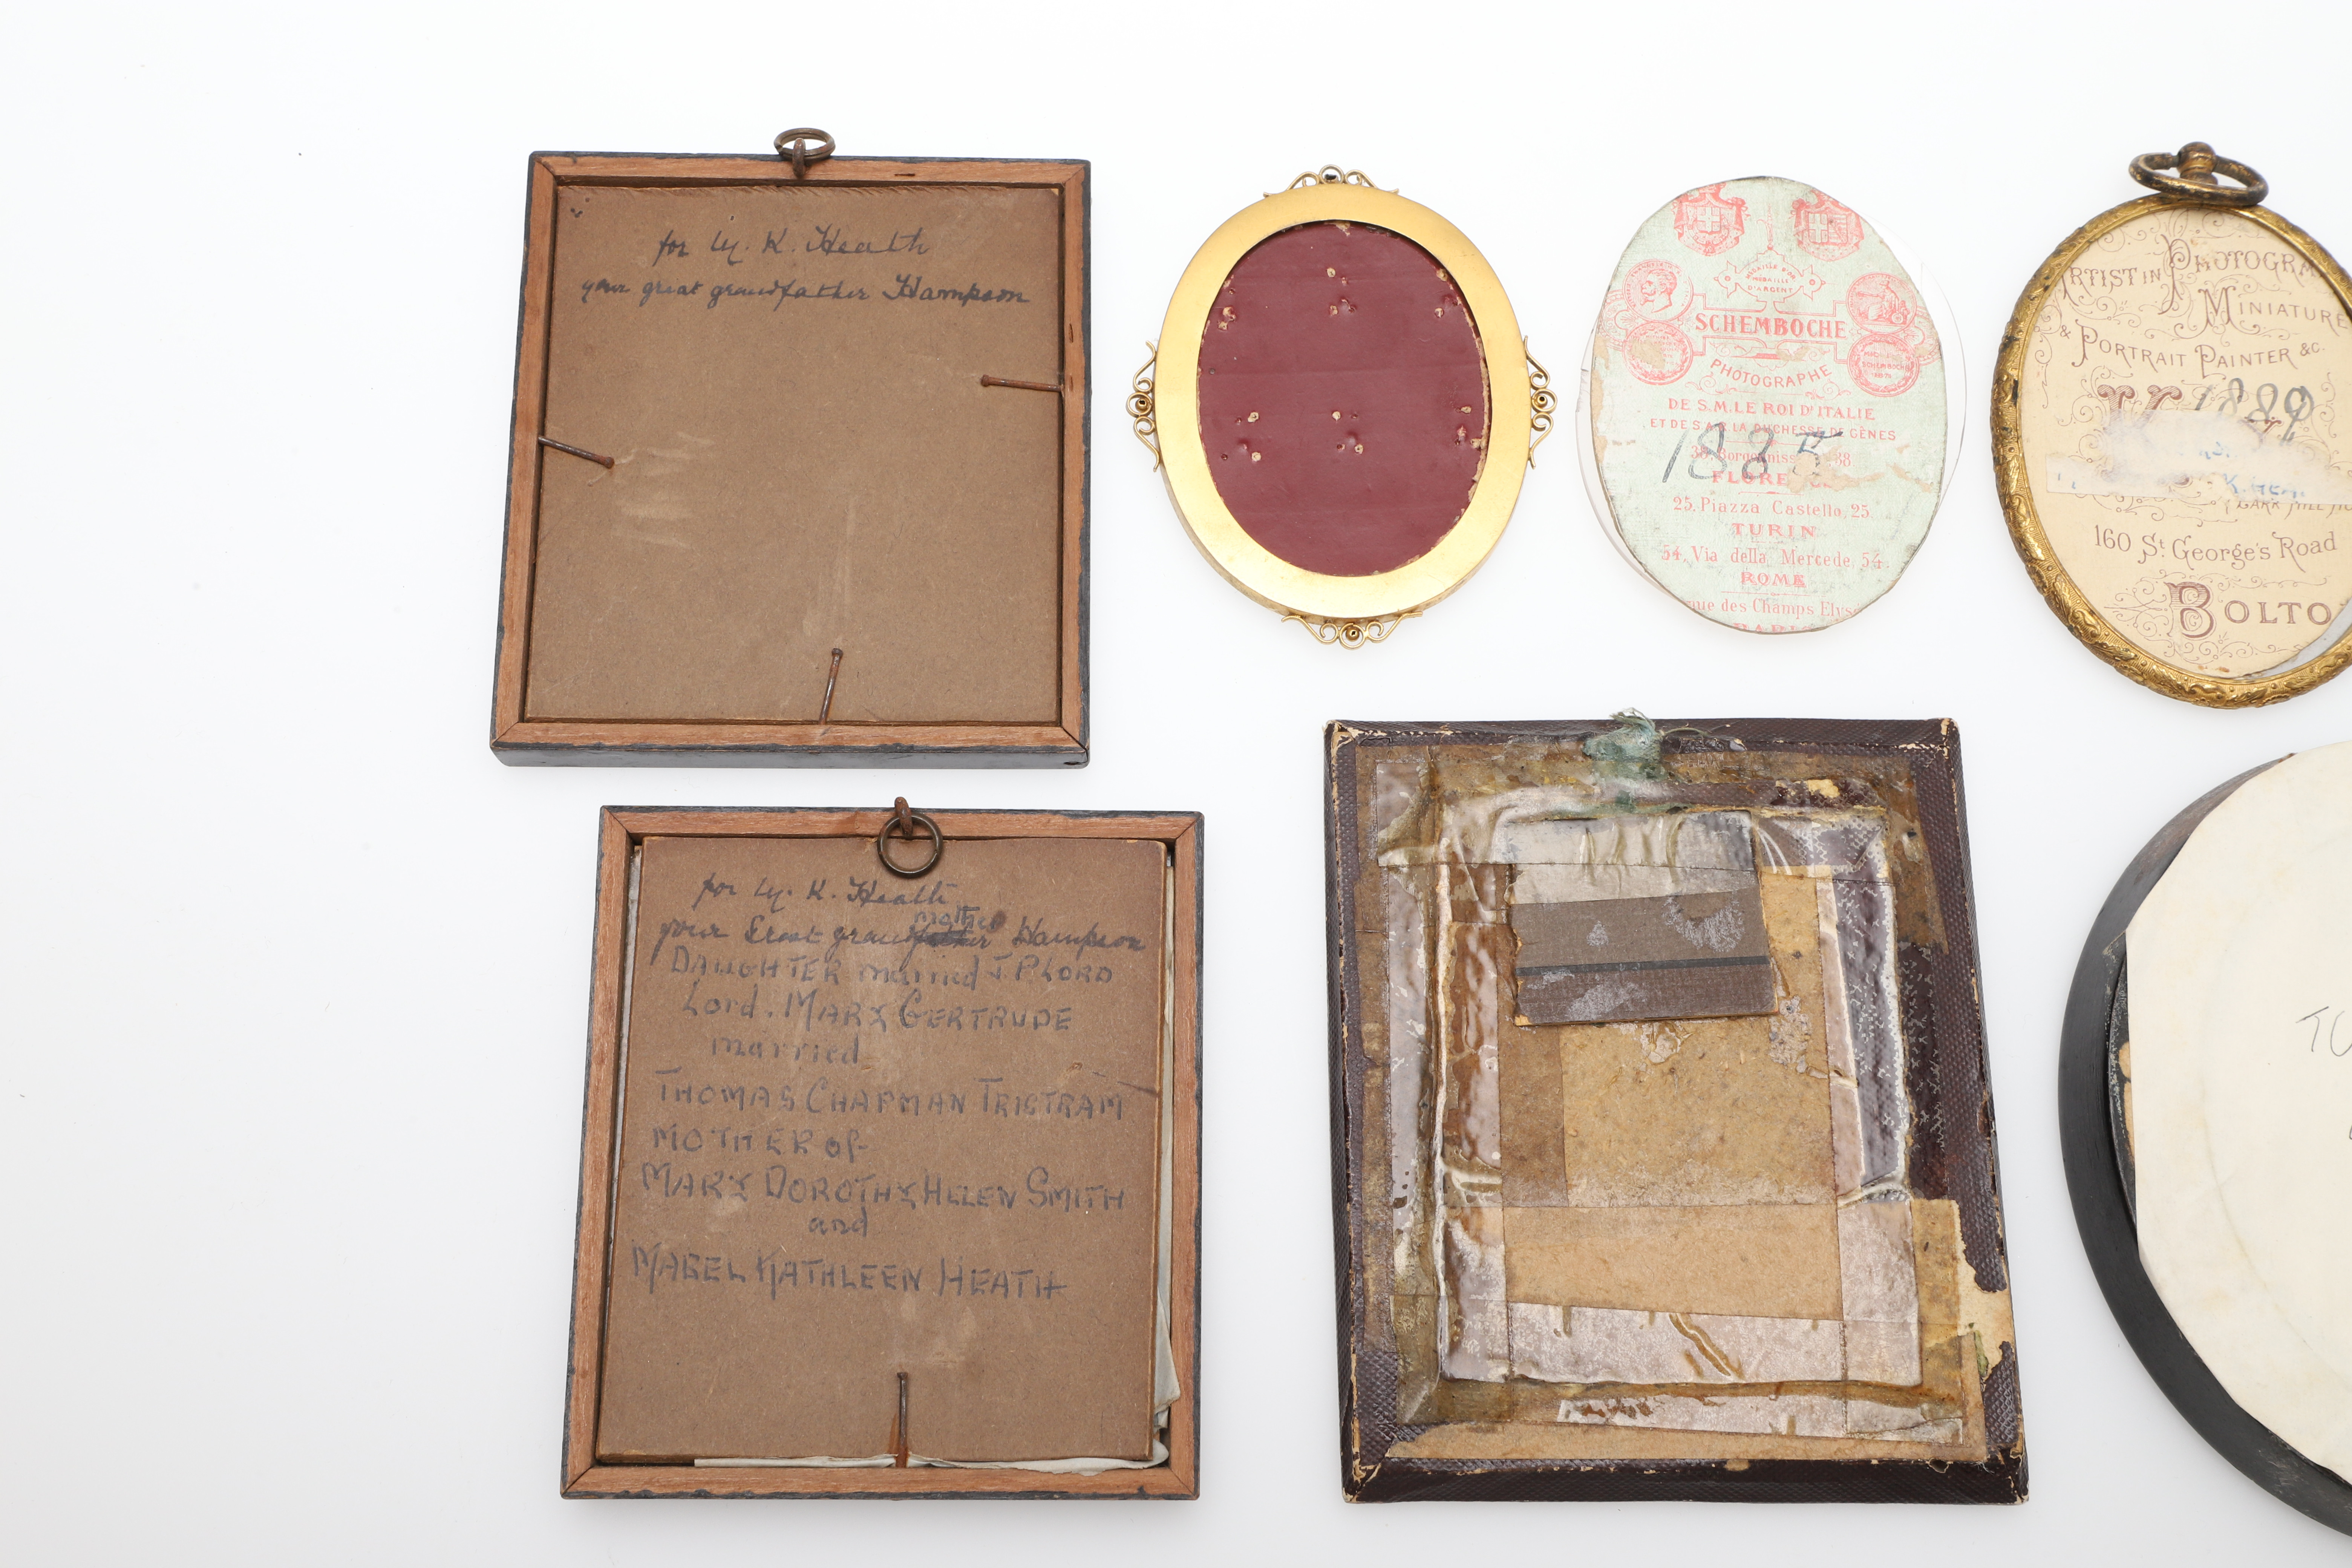 for M. K. Heath
your great grandfather Hampson
for M. K. Heath
mother
your Great grandfather Hampson
DAUGHTER married J. P LORD
Lord. MARY GERTRUDE
married
THOMAS CHAPMAN TRISTRAM
MOTHER of
MARY DOROTHY HELEN SMITH
and
MABEL KATHLEEN HEATH
MEDAILLE D'OR
MEDAILLE
D'ARGENT
SCHEMBOCHE
SCHEMBOCHE
PHOTOGRAPHE
DE S.M. LE ROI D'ITALIE
ET DE S.A.R. LA DUCHESSE DE GÈNES
1885
38
FLORE
25, Piazza Castello, 25.
TURIN
54, Via della Mercede, 54.
ROME
nue des Champs Elys
PARIS
ARTIST IN PHOTOGR
MINIATURE
& PORTRAIT PAINTER &c.
1889
K. HEA
160 St. George's Road
BOLTO
TO